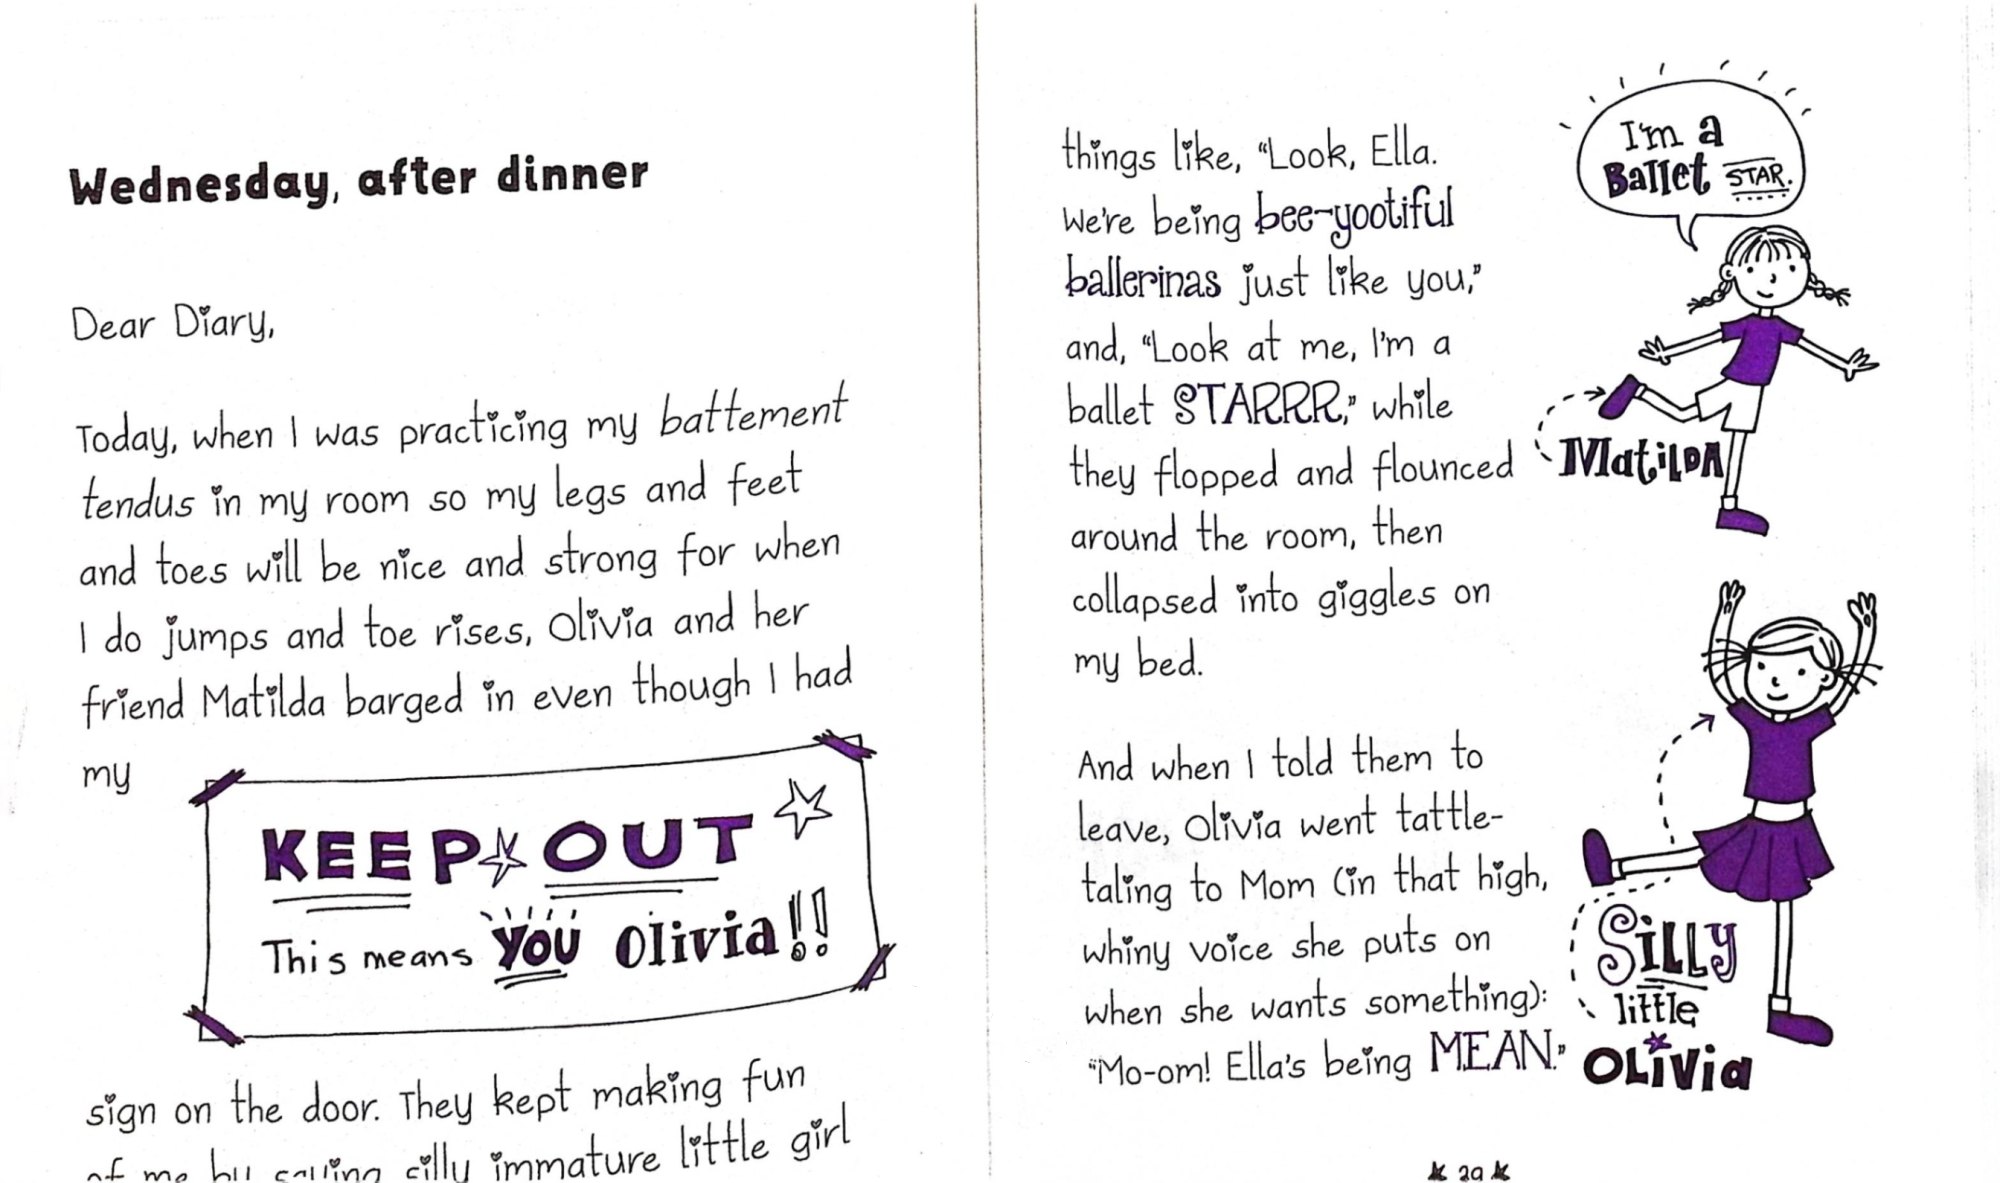 Wednesday, after dinner
Dear Diary,
Today, when I was practicing my battement
tendus in my room so my legs and feet
and toes will be nice and strong for when
I do jumps and toe rises, Olivia and her
friend Matilda barged in even though I had
my
KEEP OUT
This means YOU Olivia!!
sign on the door. They kept making fun
of me by saying silly immature little girl
things like, "Look, Ella.
We're being bee-yootiful
ballerinas just like you,"
and, "Look at me, I'm a
ballet STARRR," while
they flopped and flounced
around the room, then
collapsed into giggles on
my bed.
And when I told them to
leave, Olivia went tattle-
taling to Mom (in that high,
whiny voice she puts on
when she wants something):
"Mo-om! Ella's being MEAN."
I'm a
Ballet STAR.
MatilDA
SiLLy
little
OLiVia
29